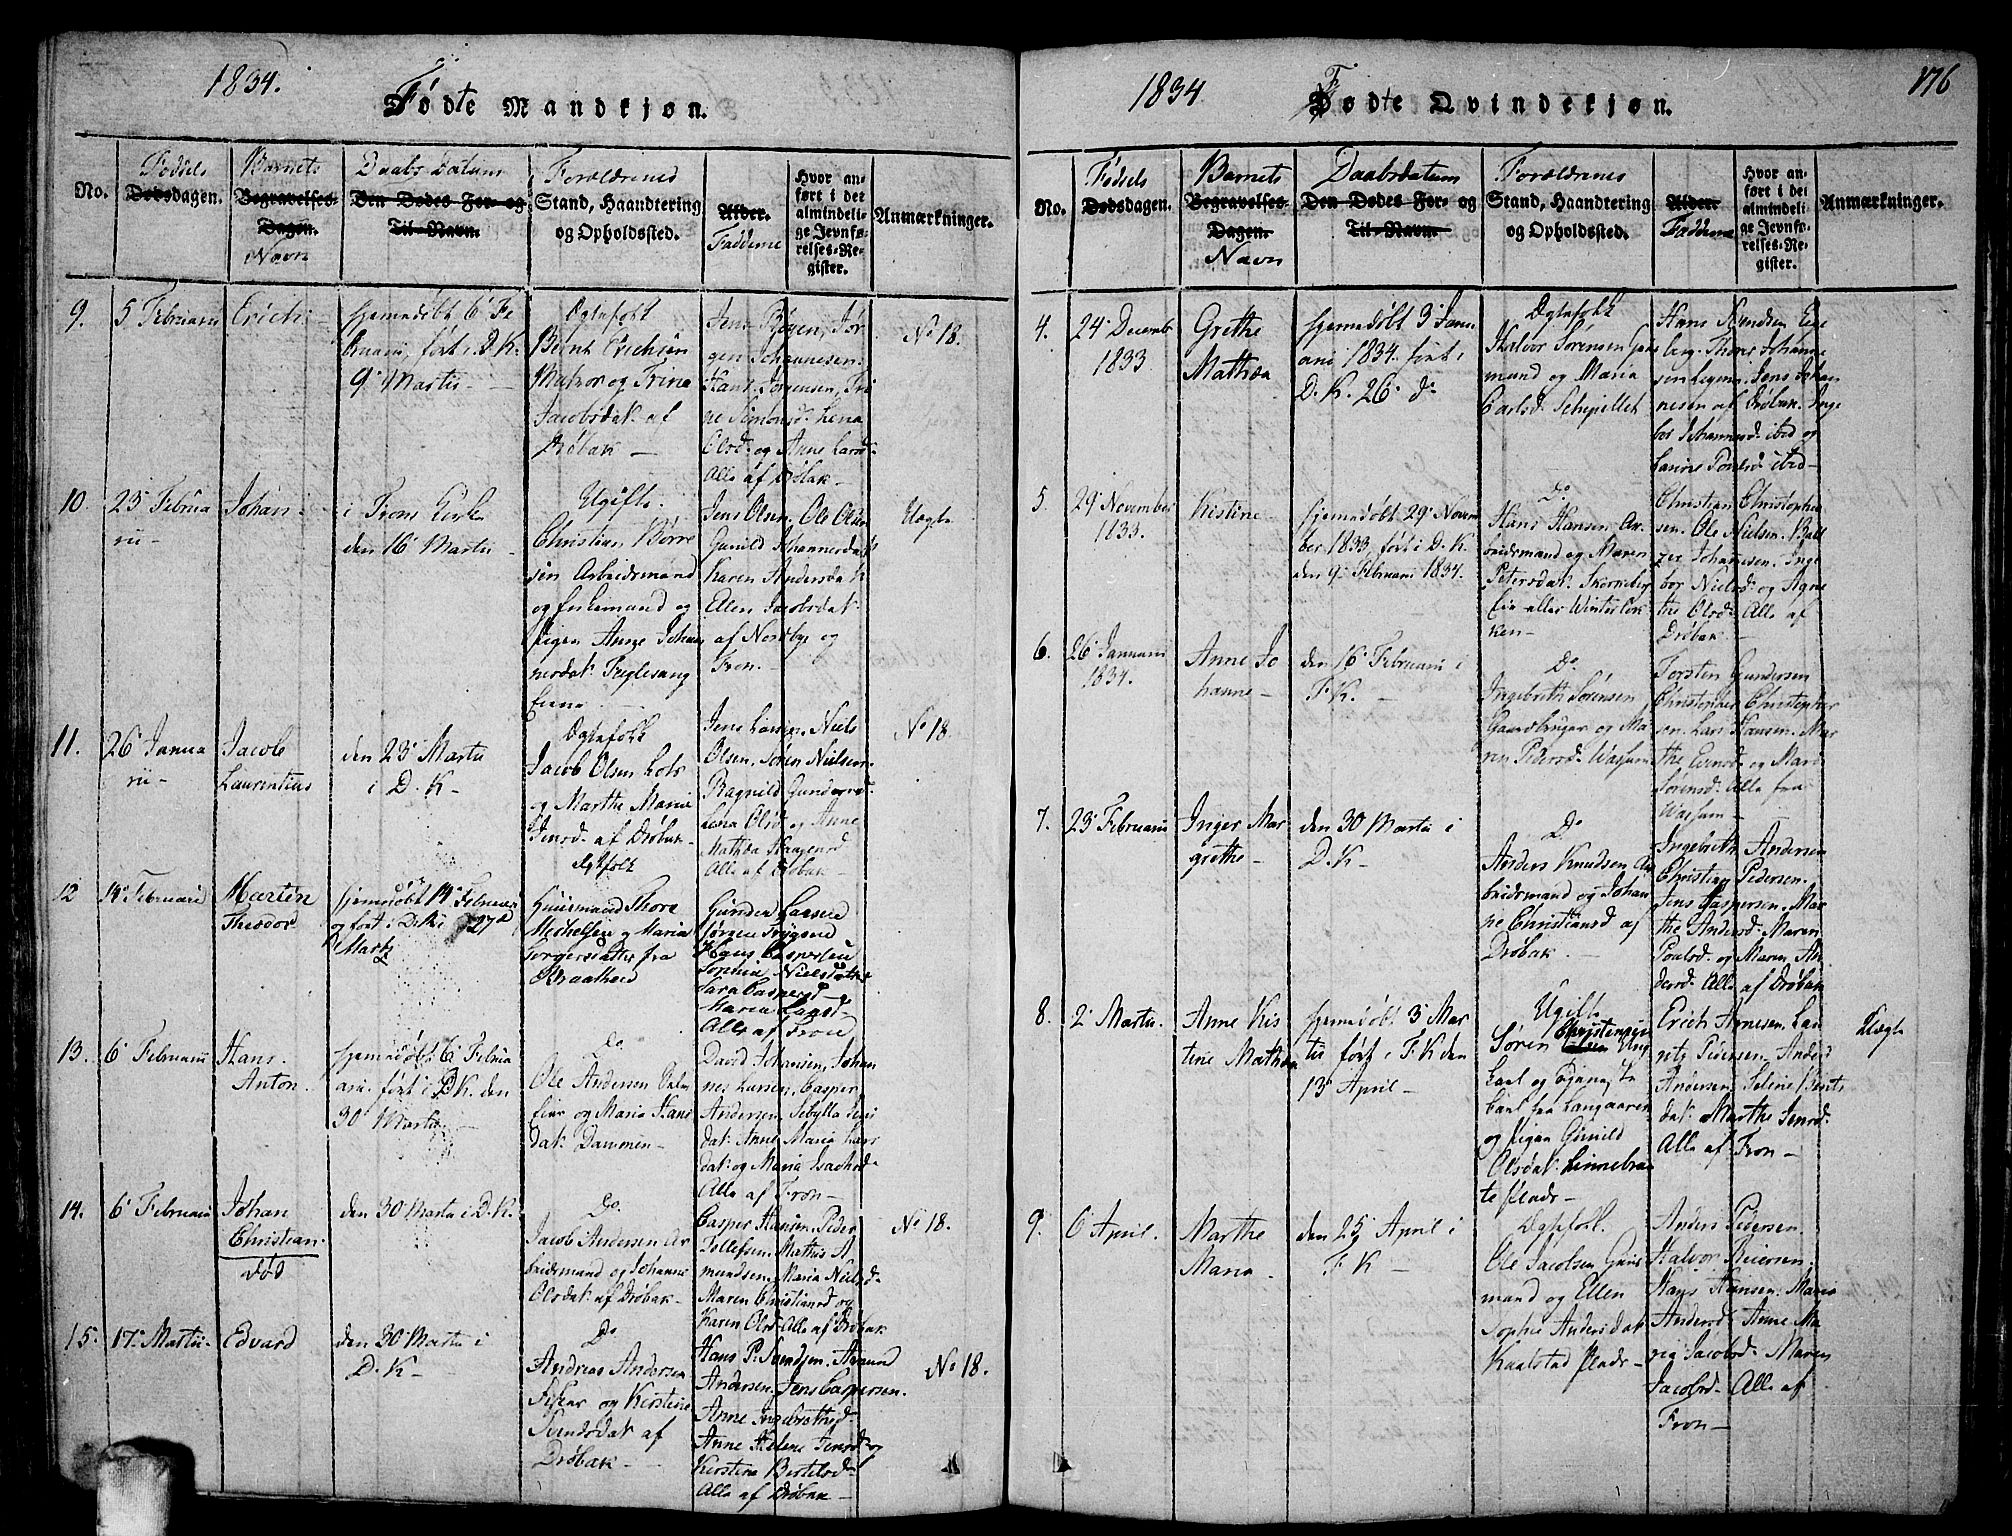 1834.
Fødte Mandkjøn.
No.
Fødsels
Dødsdagen.
Barnets
Begravelses-
Dagen.
Navn
Daabs Datum
Den Dødes For- og
Til-Navn.
Forældrenes
Stand, Haandtering
og Opholdssted.
Alder.
Fadderne
Hvor an-
ført i det
almindeli-
ge Jevnfø-
relses-Re-
gister.
Anmærkninger.
9.
5 Februarii
Erich
hjemedøbt 6 Fe
bruarii, ført i D. K.
9 Martii -
Ægtefolk
Bernt Erichsen
Matros og Trine
Jacobsdat af
Drøbak -
Jens Bøgen, Jør
gen Johannesen
Hans Jørgensen, Tri
ne Simonsd. Lena
Olsd. og Anne Larsd.
Alle af Drøbak -
No 18.
10.
23 Februa
rii -
Johan
i Frons Kirke
den 16 Martii -
Ugifte.
Christian Børre
sen Arbeidsmand
og forhemand og
Pigen Anne Johan
nesdat. Fuglesang
Eiene -
Jens Olsen, Ole Olsen
Gunild Johannesdat.
Karen Andersdat.
Ellen Jacobsdat.
af Nordbye og
Fron. -
Uægte
11.
26 Janua
rii -
Jacob
Laurentius
den 23 Martii
i D. K -
Ægtefolk
Jacob Olsen Lots
og Marthe Marie
Jensd. af Drøbak -
Jens Larsen, Niels
Olsen, Søren Nielsen
Ragnild Gundersd.
Lena Olsd. og Anne
Mathea Haagensd
Alle af Drøbak -
No 18.
12
14 Februarii
Martin
Theodor
hjemedøbt 14 Februar
og ført i D. Kirke 27d
Martz
Ægtfolk
Huusmand Thore
Michelsen og Maria
Jørgensdatter fra
Braatheid
Gunder Larsen
Jørgen Trygsend
Hans Caspersen
Sophia Nielsdatter
Sara Caspersd
Maren Larsd -
Alle af Fron
13.
6 Februarii
Hans
Anton.
hjemedøbt 6 Febru
arii. ført i D. K. den
30 Martii -
Do
Ole Andersen
eier og Maria Hans
dat. Dammen -
David Johansen, Johan
nes Larsen, Casper
Andersen, Sibylla Jens
dat. Anne Maria Lars
dat. og Maria Isachsd.
Alle af Fron -
14.
6 Februarii
Johan
Christian.
død
den 30 Martii i D. K.
Do.
Jacob Andersen Ar
beidsmand og Johanne
Olsdat. af Drøbak -
Casper Hansen, Peder
Tollefsen, Mathis A
mundsen, Maria Nielsd.
Maren Christiansd og
Karen Olsd. Alle af Drøbak
No 18.
15.
17 Martii -
Edvard
den 30 Martii i
D. K -
Do
Andreas Andersen
Fisker og Kirstine
Svendsdat af
Drøbak -
Hans P. Svendsen, Amund
Andersen, Jens Caspersen.
Anne Ingebrethsd -
Anne Helene Jensd og
Kirstine Bertelsd -
Alle af Drøbak -
No 18.
1834
Fødte Qvindekjøn.
176
No.
Fødsels
Dødsdagen.
Barnets
Begravelses
Dagen.
Navn
Daabsdatum
Den Dødes For- og
Til-Navn.
Forældrenes
Stand, Haandtering
og Opholdssted.
Alder.
Faddere
Hvor an-
ført i det
almindeli-
ge Jevnfø-
relses-Re-
gister.
Anmærkninger.
4.
24 Decembr
1833
Grethe
Mathea
hjemedøbt 3 Janu
arii 1834. ført i
D. K. 26 do
Ægtefolk
Halvor Sørensen Huus
mand og Maria
Carlsd. Schipellet
Hans Knudsen
Thore Johanne
sen Jens Johan
nesen af Drøbak. Inge
bor Johannesd. ibid og
Laurine Povelsd. ibid -
5.
29 November
1833.
Kistine -
hjemedøbt 29 Novem
ber 1833, ført i D. K.
den 9 Februarii 1834.
Do
Hans Hansen Ar
beidsmand og Maren
Petersdat. Skorkeberg
Eie eller Winterlok
ken -
Christian Christophe
sen. Ole Nielsen. Balt
zer Johannesen. Inge
bor Nielsd. og Agne
the Olsd. Alle af
Drøbak -
6.
26 Januarii
1834.
Anne Jo
hanne -
den 16 Februarii i
F. K. -
Do
Ingebrith Sørensen
Gaardbruger og Ma
ren Pedersd. Wassum
Torsten Gundersen
Christopher Christopher
sen. Lars Hansen. Mar
the Evensd. og Mari
Sørensd. Alle fra
Wassum -
7.
23 Februarii
Inger Mar
grethe -
den 30 Martii i
D. K -
Do
Anders Knudsen Ar
beidsmand og Johan
ne Christiansd af
Drøbak. -
Ingebrith Andersen
Christian Pedersen.
Jens Caspersen. Mar
the Andersd. Maren
Poulsd. og Maren An
dersd. Alle af Drøbak
8.
2 Martii.
Anne Kis
tine Mathea
hjemedøbt 3 Mar
tii ført i F. K den
13 April -
Ugifte
Søren Christensen Ung
karl og Tjeneste
karl fra Langaaren
og Pigen Gunild
Olsdat. Linnebræ
te Plads -
Erich Arnesen. Lau
ritz Pedersen. Anders
Andersen. Seline Bernts
dat. Marthe Jensd.
Alle af Fron -
Uægte
9.
6 April.
Marthe
Maria -
den 25 April i
F. K -
Ægtefolk.
Ole Jacobsen Huus
mand og Ellen
Sophie Andersdat
Kaalstad Plads -
Anders Pedersen.
Halvor Reiersen.
Hans Hansen. Maria
Andersd. Anne Ma
ria Jacobsd. Maren
Jacobsd. Alle af
Fron -